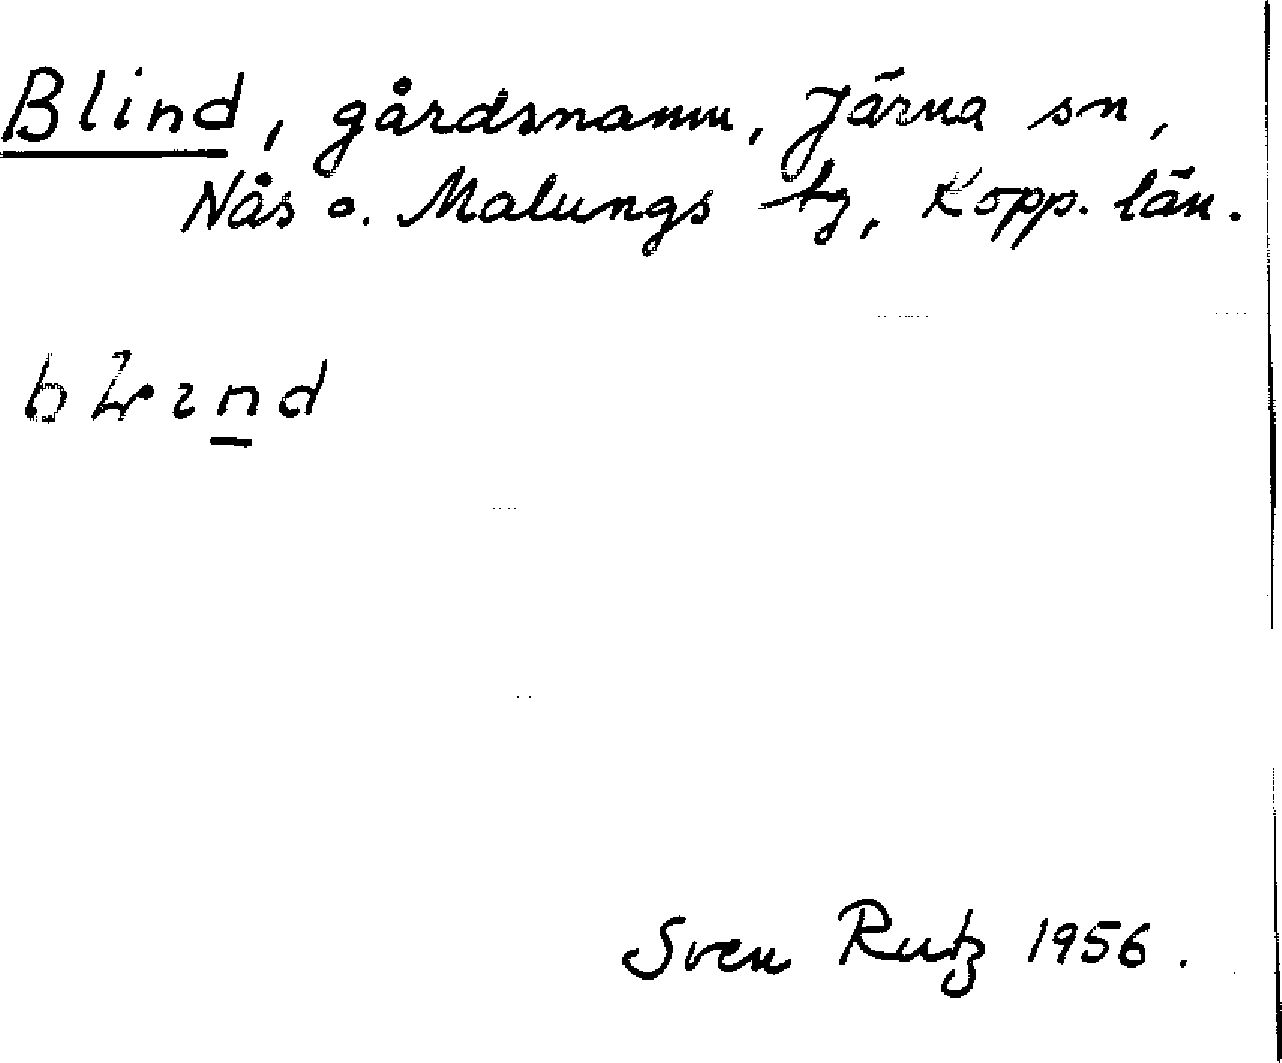 Blind, gårdsnamn, Järna sn,
Nås o. Malungs tg, Kopp. län.
Sven Rutz 1956.